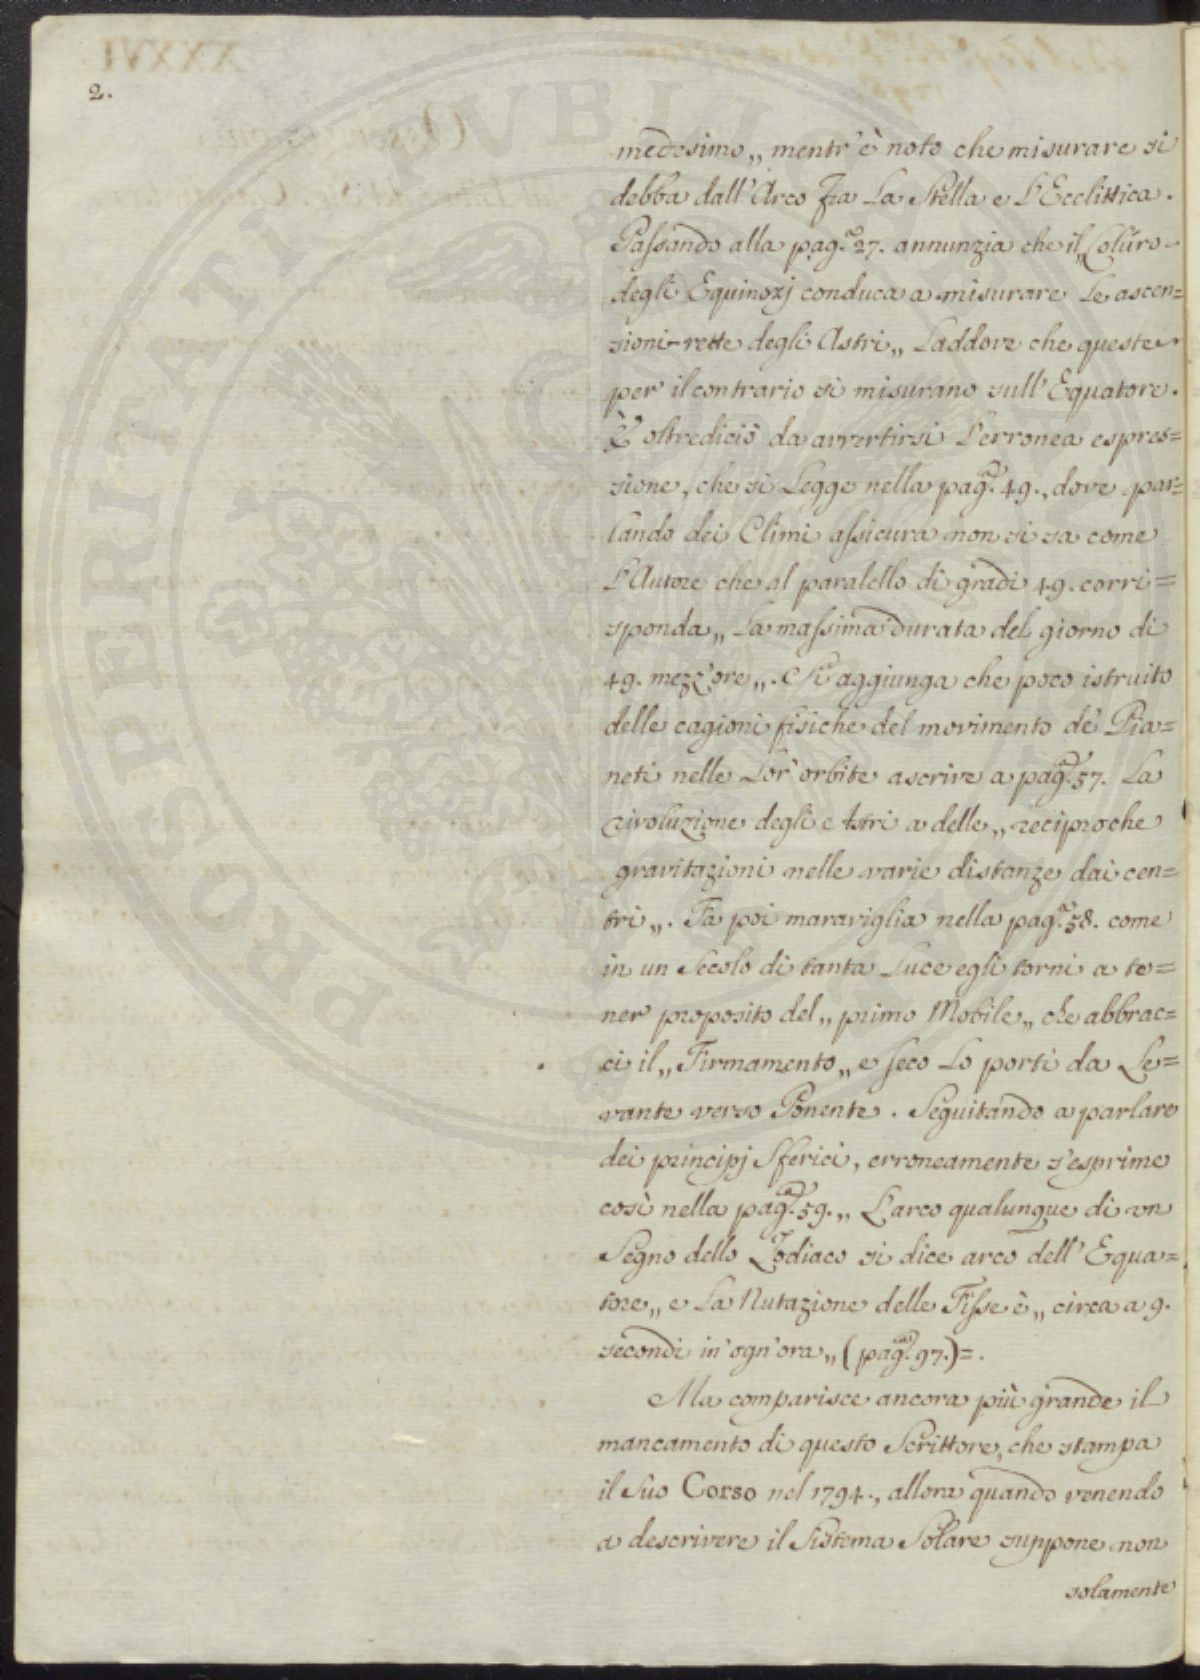 2.
medesimo„ mentr'è noto che misurare si
debba dall'Arco fra La Stella e L'Ecclittica.
Passando alla pag.ª 27. annunzia che il„ Coluro
degli Equinozj conduca a misurare Le ascen=
sioni-rette degli Astri„ Laddove che queste
per il contrario si misurano sull'Equatore.
È oltrediciò da avvertirsi L'erronea espres=
sione, che si Legge nella pag.ª 49., dove par=
lando dei Climi assicura non si sa come
L'Autore che al paralello di gradi 49. corri=
sponda„ La massima durata del giorno di
49. mezz'ore„. Si aggiunga che poco istruito
delle cagioni fisiche del movimento de' Pia=
neti nelle Lor'orbite ascrive a pag.ª 57. La
rivoluzione degli Astri a delle„ reciproche
gravitazioni nelle varie distanze dai cen=
tri„. Fa poi maraviglia nella pag.ª 58. come
in un Secolo di tanta Luce egli torni a te=
ner proposito del„ primo Mobile„ che abbrac=
ci il„ Firmamento„ e seco Lo porti da Le=
vante verso Ponente. Seguitando a parlare
dei principj Sferici, erroneamente s'esprime
così nella pag.ª 59.„ L'arco qualunque di un
Segno dello Zodiaco si dice arco dell'Equa=
tore„ e La Nutazione delle Fisse è„ circa a 9.
secondi in ogn'ora„ (pag.ª 97.)=.
Ma comparisce ancora più grande il
mancamento di questo Scrittore, che stampa
il Suo Corso nel 1794., allora quando venendo
a descrivere il Sistema Solare suppone non
solamente
PROSPERITATI PVBLICAE